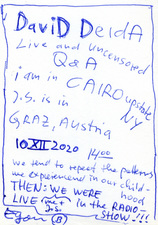 DaviD DeidA
Live and uncensored
Q&A
i am in CAIRO upstate
NY
J.S. is in
GRAZ, Austria
10 XII 2020 14⁰⁰
we tend to repeat the patterns
we experienced in our child-
hood
THEN: WE WERE
LIVE in the RADIO
SHOW!!!